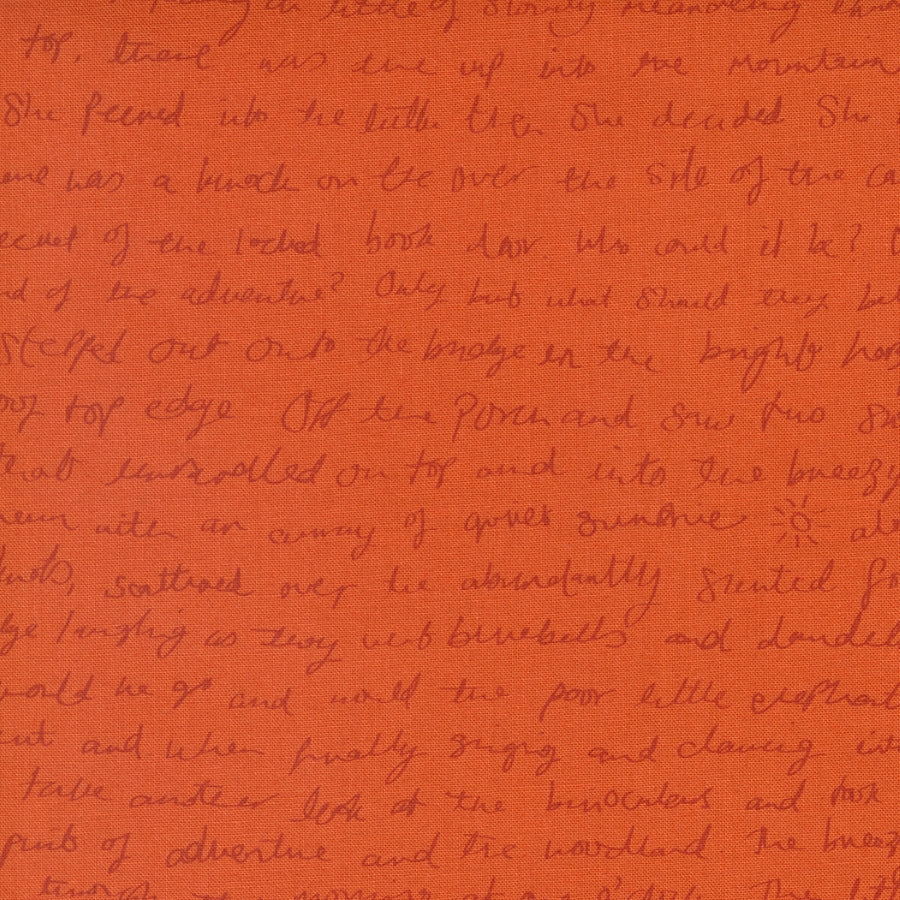 little of slowly meandering
top, there was the up into the mountain
She peered into the little then She decided She
was a knock on the over the side of the
of the locked book door. Who could it be?
of the adventure? Only but what should they
stepped out onto the bridge in the brightly
top edge Off the Porch and saw two
that on top and into the breezy
with an array of quiet sunshine
scattered over the abundantly scented
laughing as they went bluebells and
would he go and would the poor little elephant
and when finally singing and dancing
take another look at the binoculars and took
of adventure and the woodland. The
the morning at The